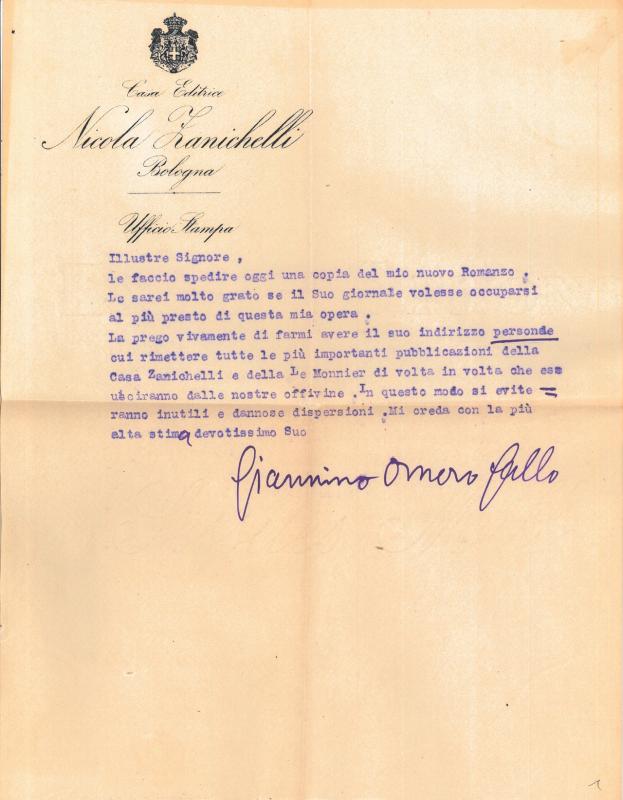 Casa Editrice
Nicola Zanichelli
Bologna
Ufficio Stampa
Illustre Signore ,
le faccio spedire oggi una copia del mio nuovo Romanzo .
Le sarei molto grato se il Suo giornale volesse occuparsi
al più presto di questa mia opera .
La prego vivamente di farmi avere il suo indirizzo personae
cui rimettere tutte le più importanti pubblicazioni della
Casa Zanichelli e della Le Monnier di volta in volta che es=
usciranno dalle nostre offivine .In questo modo si evite =
ranno inutili e dannose dispersioni .Mi creda con la più
alta stima devotissimo Suo
Giannino Omero Gallo
1